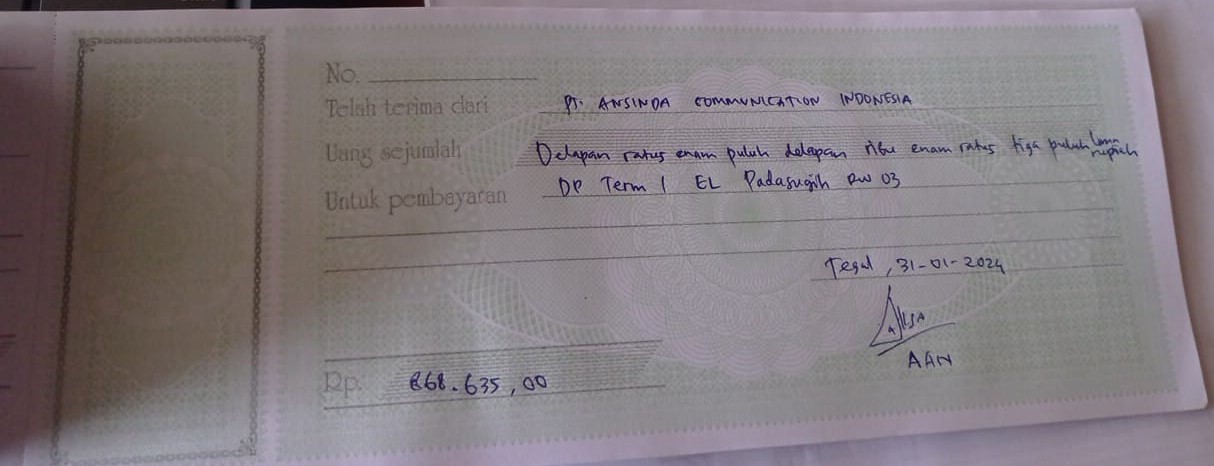 No.
Telah terima dari PT. ANSINDA COMMUNICATION INDONESIA
Uang sejumlah Delapan ratus enam puluh delapan ribu enam ratus tiga puluh lima rupiah
Untuk pembayaran DP Term 1 EL Padasugih RW 03
Tegal, 31-01-2024
AAN
Rp. 868.635,00